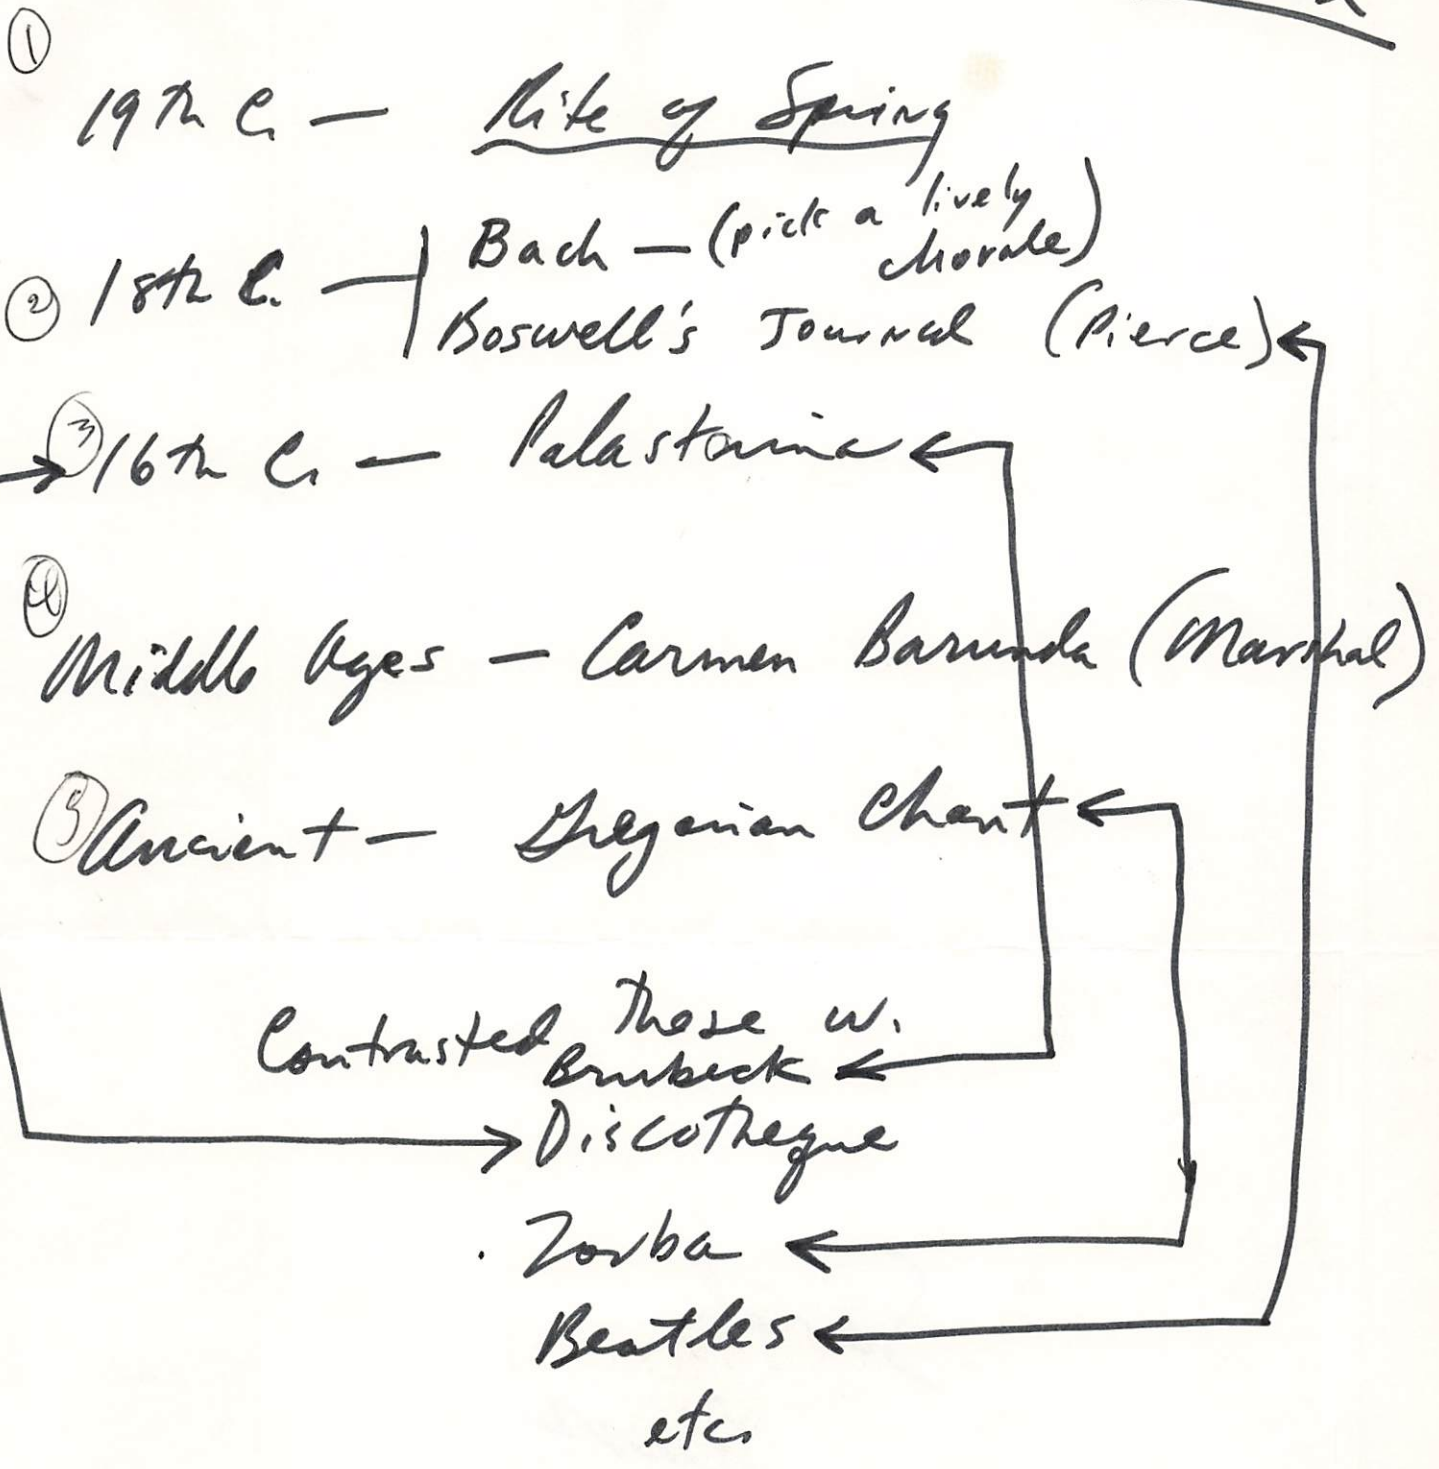 ①
19th C. — Rite of Spring
② 18th C. — Bach — (pick a lively chorale)
Boswell's Journal (Pierce)
③ 16th C. — Palastrina
④
Middle Ages — Carmen Barunda (Marshal)
⑤ Ancient — Gregorian Chant
Contrasted these w.
Brubeck
Discotheque
Zorba
Beatles
etc.